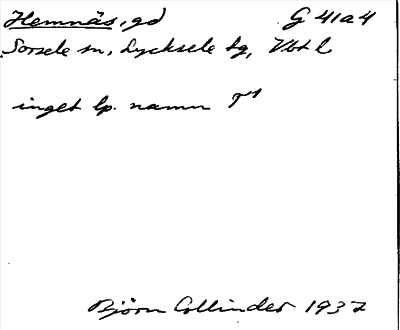 Hemnäs, gd G 41a4
Sorsele sn, Lycksele lg, Vbt l
inget lp. namn
Björn Collinder 1937